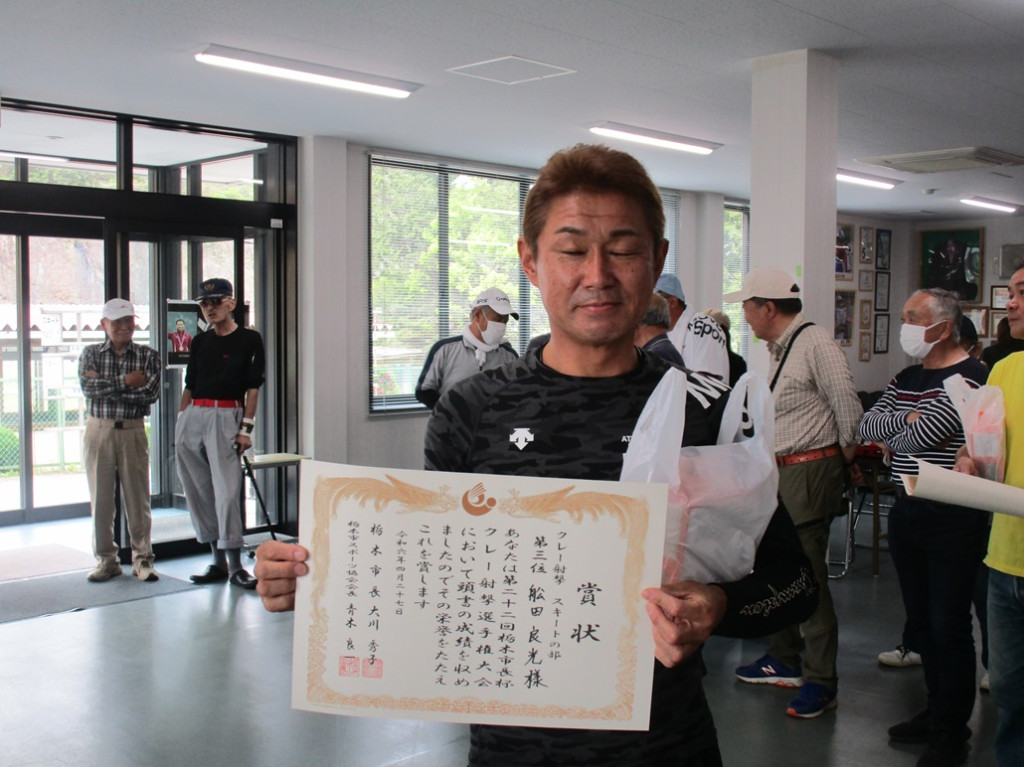 賞状
クレー射撃 スキートの部
第三位 舩田良光様
あなたは第二十二回栃木市長杯
クレー射撃選手権大会
において頭書の成績を収め
ましたのでその栄誉をたたえ
これを賞します
令和六年四月二十七日
栃木市長 大川秀子
栃木市スポーツ協会会長 青木良一
Sport